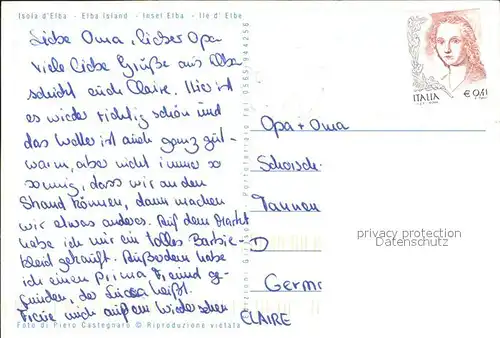 Isola d'Elba - Elba Island - Insel Elba - Ile d'Elbe
Liebe Oma, lieber Opa
viele liebe Grüße aus Elba
schickt euch Claire. Hier ist
es wieder richtig schön und
das Wetter ist auch ganz gut -
warm, aber nicht immer so
sonnig, dass wir an den
Strand können, dann machen
wir etwas anderes. Auf dem Markt
habe ich mir ein tolles Barbie-
kleid gekauft. Außerdem habe
ich einen prima Freund ge-
funden, der Luca heißt.
Freue mich auf ein Wiedersehen
CLAIRE
Foto di Piero Castegnaro © Riproduzione vietata
Portoferraio Tel. 0565/944256
ITALIA
€ 0,41
Opa + Oma
Schoisch
Tannen
D
Germ
privacy protection
Datenschutz